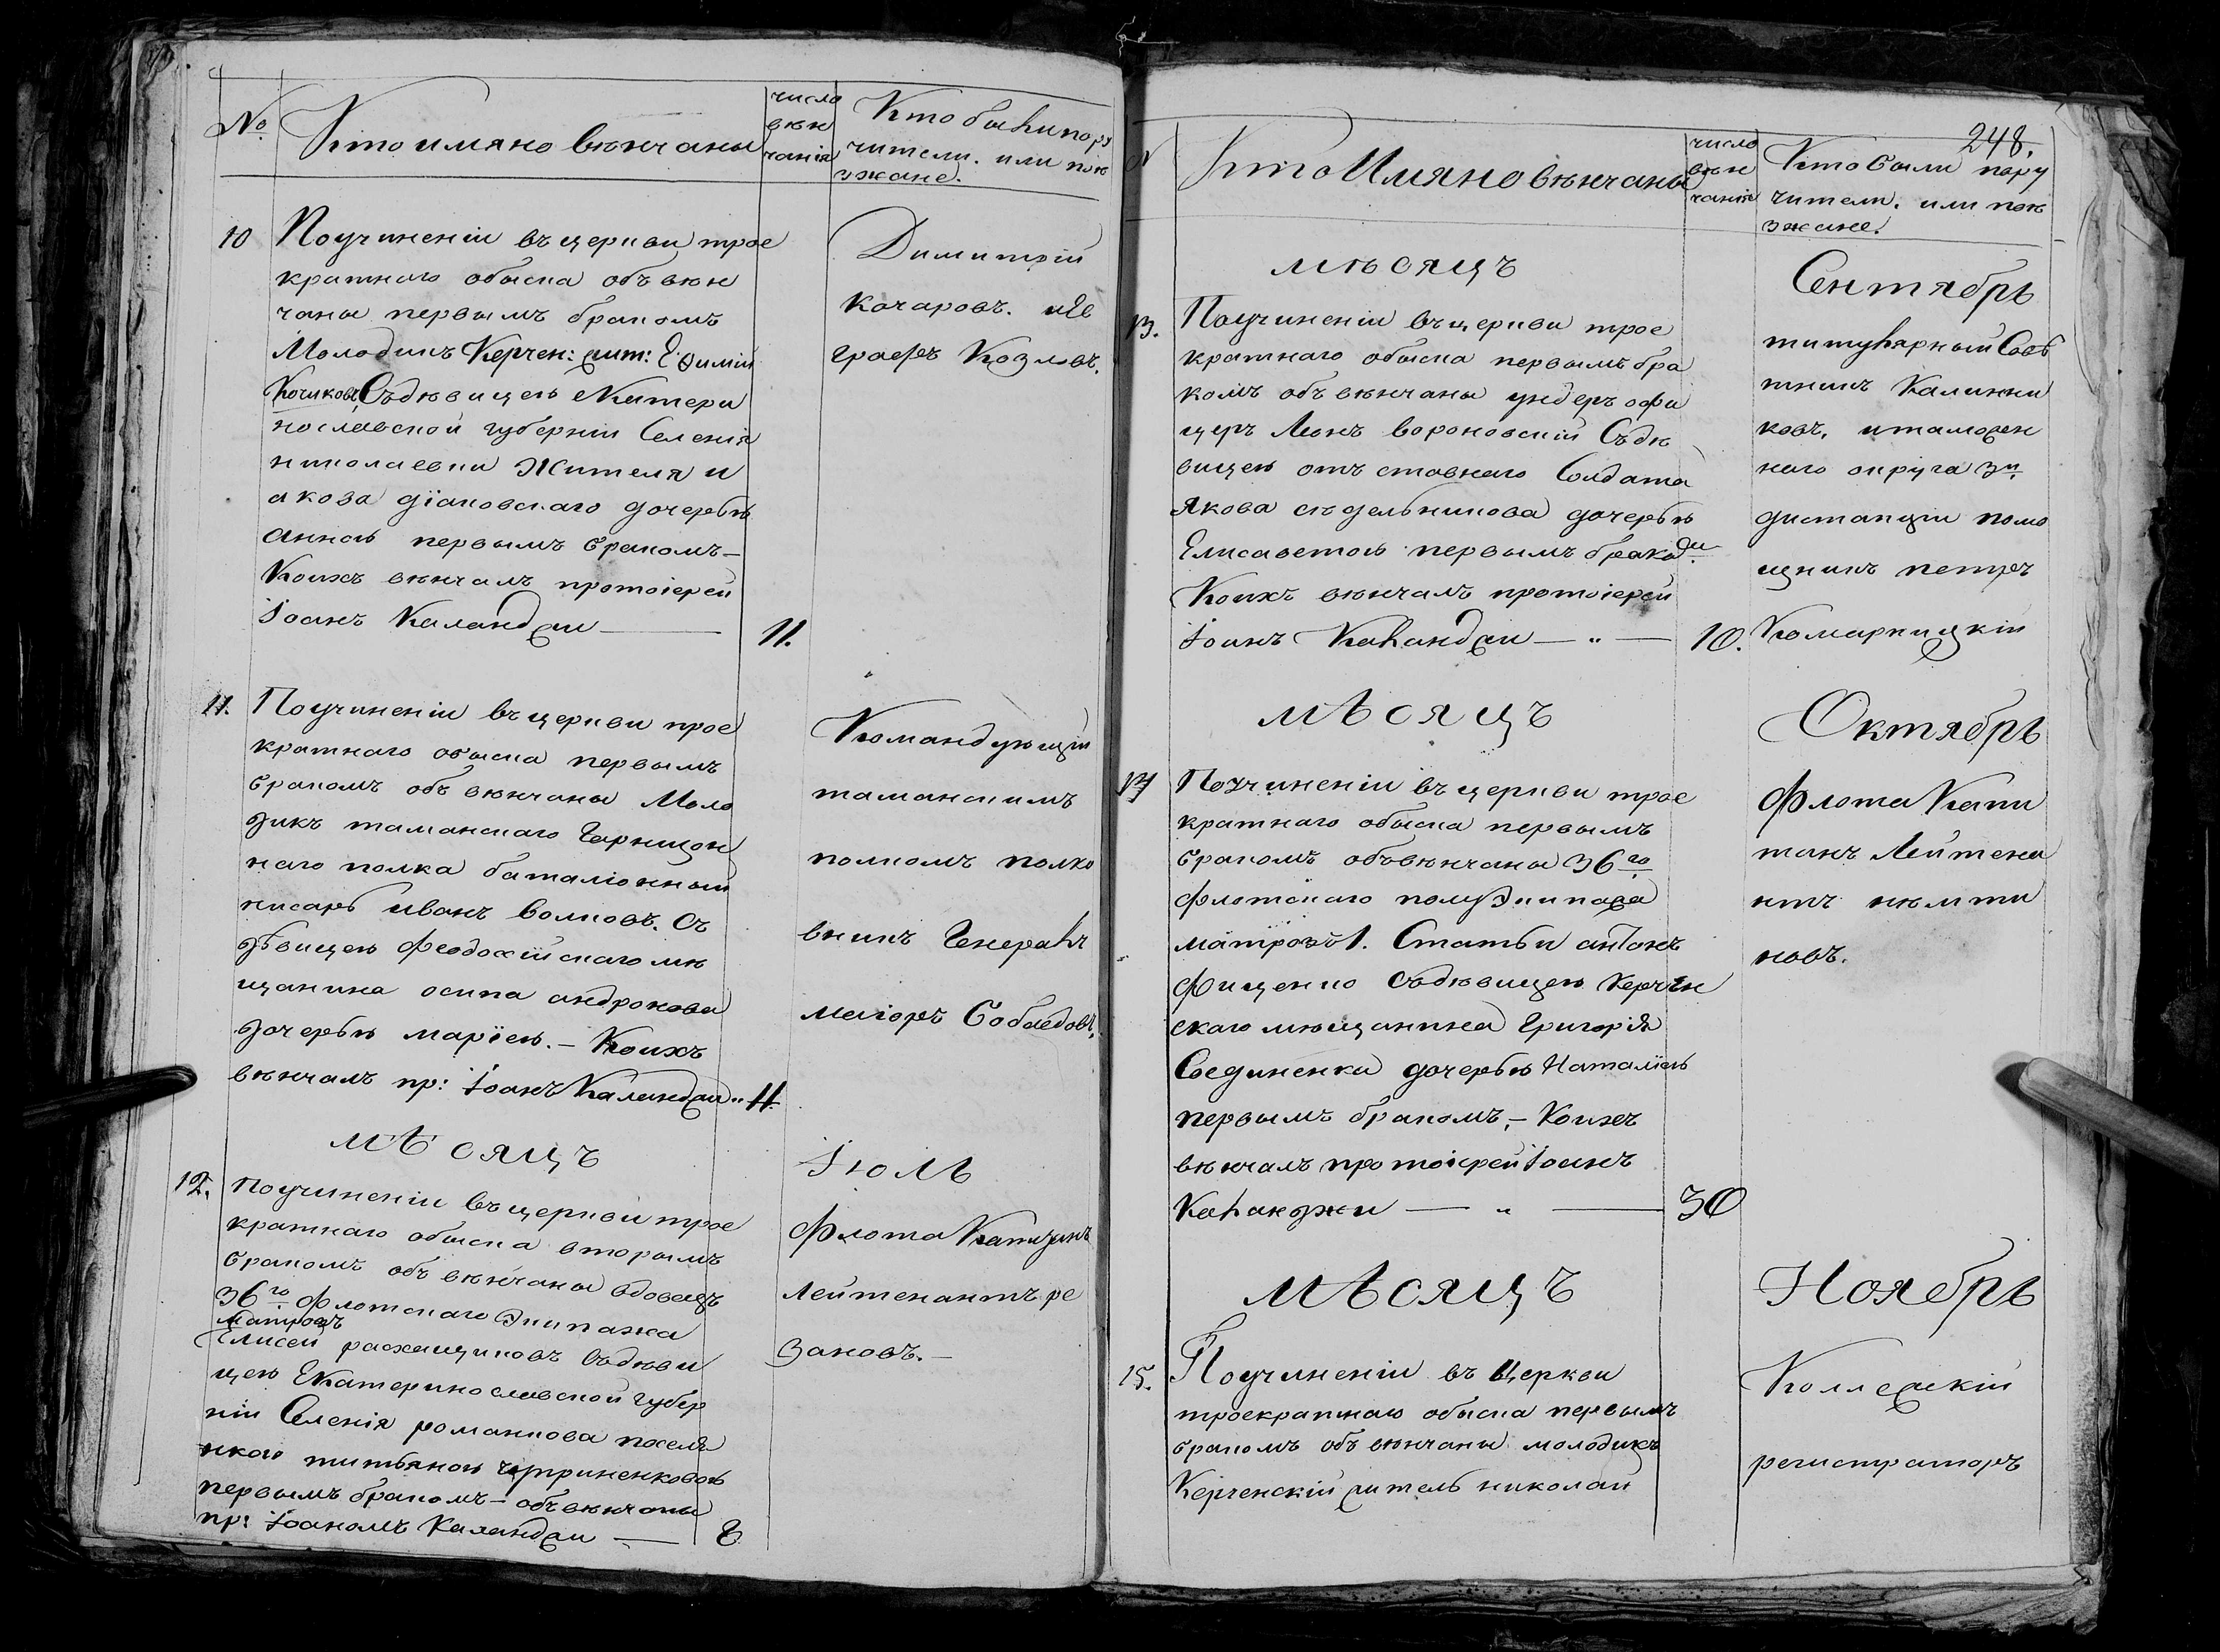 №
Кто имяно вѣнчаны
число
вѣн
чанія
Кто были пору
чители. или поѣ
зжане.
10
Поучиненіи въ церкви трое
кратнаго обыска объ вѣн
чаны первымъ бракомъ
Молодикъ Керчен: жит: Ефимій
Кочиковъ, Съдѣвицею екатери
нославской губерніи Селенія
николаевки Жителя и
акова діаковскаго дочерью
анною первымъ бракомъ —
Коихъ вѣнчалъ протоіерей
Іоанъ Каланджи — 11.
Димитрій
Качаровъ. и Ев
графъ Козловъ.
11.
Поучиненіи въ церкви трое
кратнаго обыска первымъ
бракомъ объ вѣнчаны Моло
дикъ таманскаго Гарнизон
наго полка баталіонный
писарь иванъ волковъ. Съ
дѣвицею Феодосійскаго мѣ
щанина осипа андронова
дочерью маріею. — Коихъ
вѣнчалъ пр: Іоанъ Каланджи „ 11.
Командующій
таманскимъ
полкомъ полко
вникъ Генералъ
маіоръ Бобоѣдовъ.
мѢсяцъ
Іюль
12.
поучиненіи въ церкви трое
кратнаго обыска вторымъ
бракомъ объ вѣнчаны вдовецъ
36го флотскаго Экипажа
матрозъ
Елисей расхищиковъ Съдѣви
цею Екатеринославской губер
ніи Селенія романкова поселя
нкою титьяною
первымъ бракомъ — объвѣнчаны
пр: Іоаномъ Каланджи — 8
Флота Капитанъ
Лейтенантъ ре
зановъ. —
248.
№
Кто Имяно вѣнчаны
число
вѣн
чанія
Кто были пору
чители. или поѣ
зжане.
мѣсяцъ
Сентябрь
13.
Поучиненіи въ церкви трое
кратнаго обыска первымъ бра
комъ объ вѣнчаны ундеръ офи
церъ Леонъ вороновскій Съдѣ
вицею отъ ставнаго Солдата
Якова сѣдельникова дочерью
Елисаветою первымъ бракомъ
Коихъ вѣнчалъ протоіерей
Іоанъ Каланджи — „ — 10.
титулярный Совѣ
тникъ Калинни
ковъ. и таможен
наго округа 3й
дистанціи помо
щникъ петръ
Комарницкій
мѢсяцъ
Октябрь
14
Поучиненіи въ церкви трое
кратнаго обыска первымъ
бракомъ объвѣнчаны 36го
флотскаго полуЭкипажа
матрозъ 1. Статьи антонъ
Фищенко Съдѣвицею Керчен
скаго мѣщанина Григорія
Соединенка дочерью Наталіею
первымъ бракомъ, — Коихъ
вѣнчалъ протоіерей Іоанъ
Каланджи — „ — 30
Флота Капи
танъ Лейтена
нтъ нѣлти
новъ.
мѢсяцъ
Ноябрь
15.
Поучиненіи въ Церкви
троекратнаго обыска первымъ
бракомъ объ вѣнчаны молодикъ
Керченскій житель николай
Коллежскій
регистраторъ